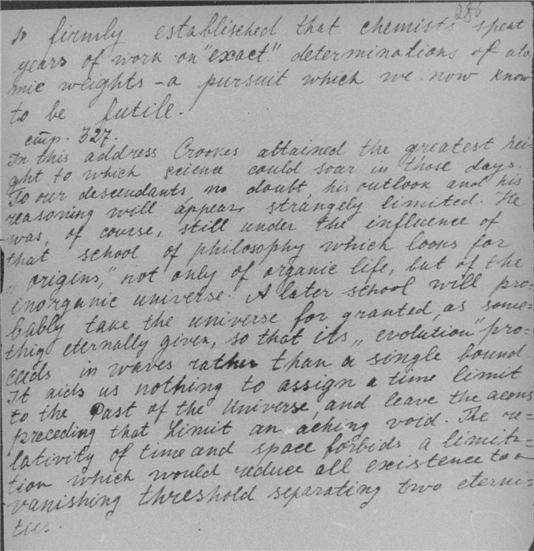 286
so firmly establisched that chemists spent
years of work on "exact" determinations of ato
mic weights - a pursuit which we now know
to be futile.
cmp. 327.
In this address Crookes attained the greatest hei-
ght to which science could soar in those days.
To our descendants, no doubt, his outlook and his
reasoning will appear strangely limited. He
was, of course, still under the influence of
that school of philosophy which looks for
„origins," not only of organic life, but of the
inorganic universe. A later school will pro-
bably take the universe for granted, as some-
thig eternally given, so that its „evolution" pro-
ceeds in waves rather than a single bound.
It aids us nothing to assign a time limit
to the Past of the Universe, and leave the aeons
preceding that Limit an aching void. The re-
lativity of time and space forbids a limita-
tion which would reduce all existence to a
vanishing threshold separating two eterni-
ties.